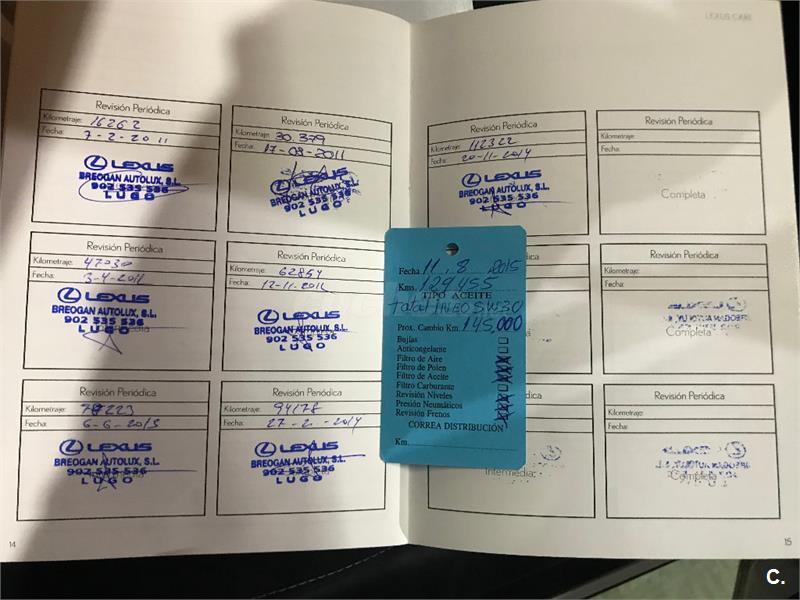 LEXUS CARE
Revisión Periódica
Kilometraje: 16262
Fecha: 7-2-2011
LEXUS
BREOGAN AUTOLUX, S.L.
902 535 536
LUGO
Revisión Periódica
Kilometraje: 30.379
Fecha: 17-08-2011
LEXUS
BREOGAN AUTOLUX, S.L.
902 535 536
LUGO
Revisión Periódica
Kilometraje: 47030
Fecha:
LEXUS
BREOGAN AUTOLUX, S.L.
902 535 536
LUGO
Revisión Periódica
Kilometraje: 62854
Fecha:
LEXUS
BREOGAN AUTOLUX, S.L.
902 535 536
LUGO
Revisión Periódica
Kilometraje:
Fecha: 6-6-2013
LEXUS
BREOGAN AUTOLUX, S.L.
902 535 536
LUGO
Revisión Periódica
Kilometraje: 94178
Fecha: 27-2-2014
LEXUS
BREOGAN AUTOLUX, S.L.
902 535 536
LUGO
14
Revisión Periódica
Kilometraje: 112322
Fecha: 20-11-2014
LEXUS
BREOGAN AUTOLUX, S.L.
902 535 536
LUGO
Revisión Periódica
Kilometraje:
Fecha:
Completa
Revisión Periódica
Kilometraje:
Fecha:
Revisión Periódica
Kilometraje:
Fecha:
Completa
Intermedia
15
Fecha 11.8 2015
Kms. 129455
TIPO ACEITE
total INEO 5W30
Prox. Cambio Km. 145,000
Bujías
Anticongelante
Filtro de Aire
Filtro de Polen
Filtro de Aceite
Filtro Carburante
Revisión Niveles
Presión Neumáticos
Revisión Frenos
CORREA DISTRIBUCIÓN
Km.
C.